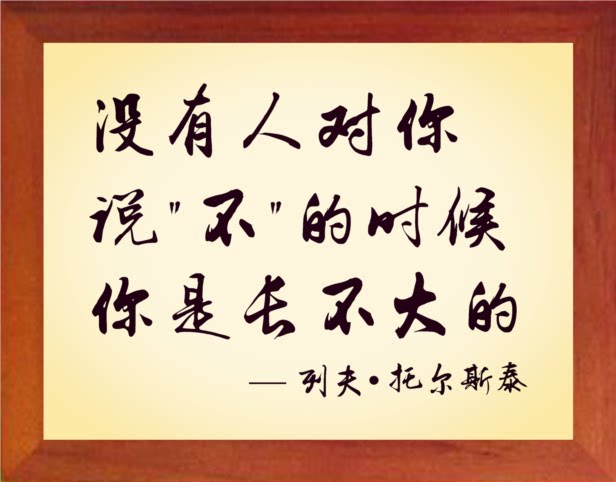 没有人对你
说"不"的时候
你是长不大的
— 列夫•托尔斯泰